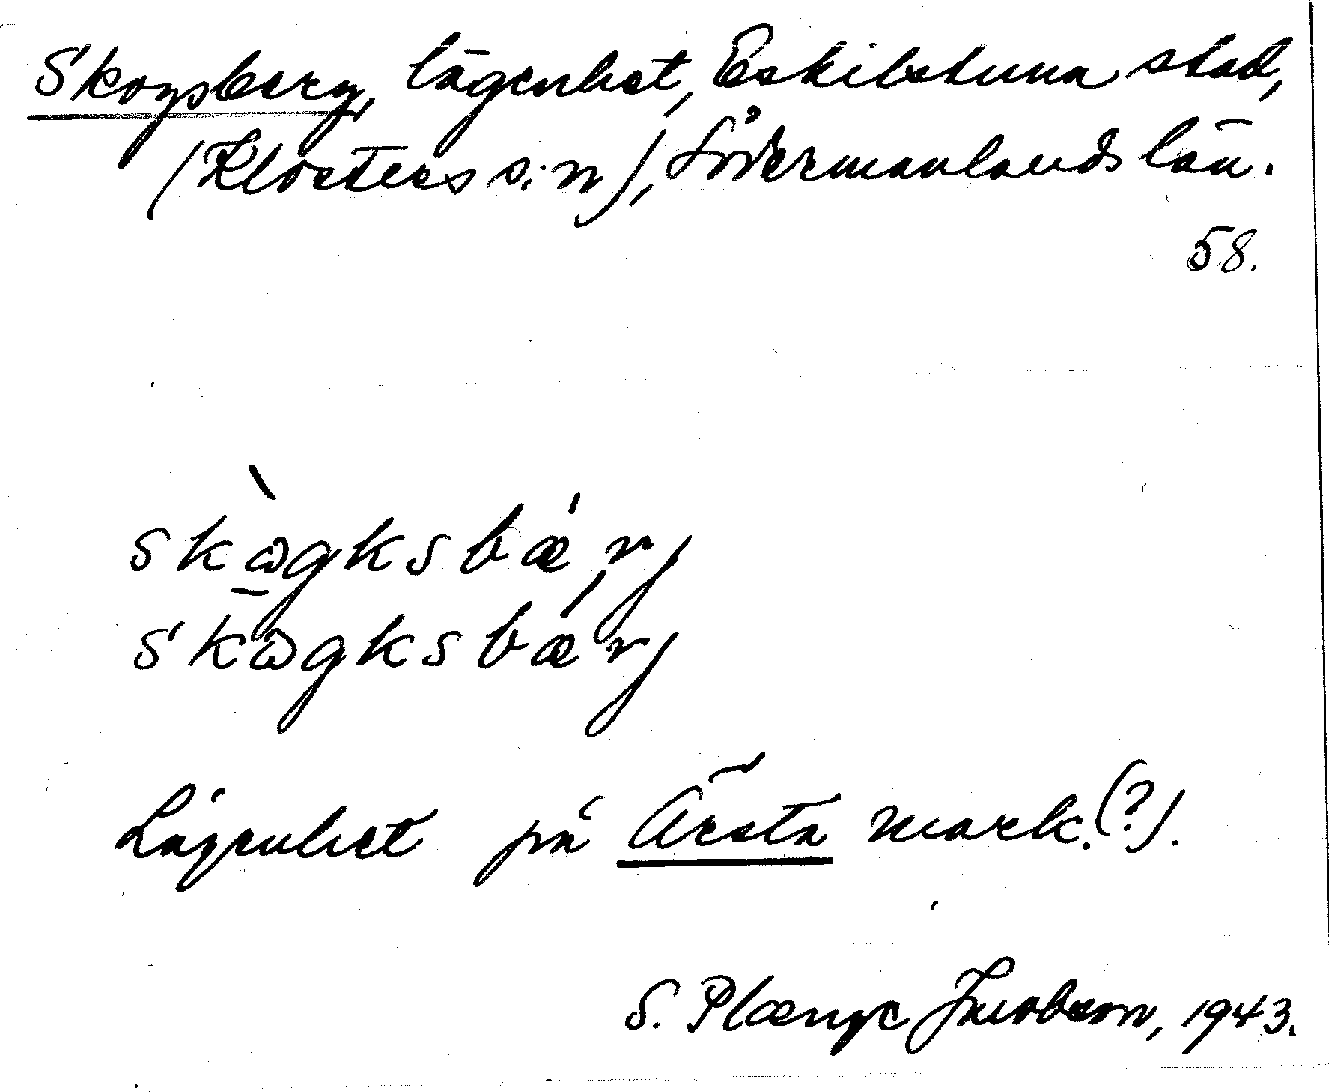 Skogsberg, lägenhet, Eskilstuna stad,
(Klosters s:n), Södermanlands län.
58.
skɷ̀gksbæ̀rj
skɷ̄gksbǽrj
Lägenhet på Ärsta mark.(?).
S. Plænge Jacobson, 1943.